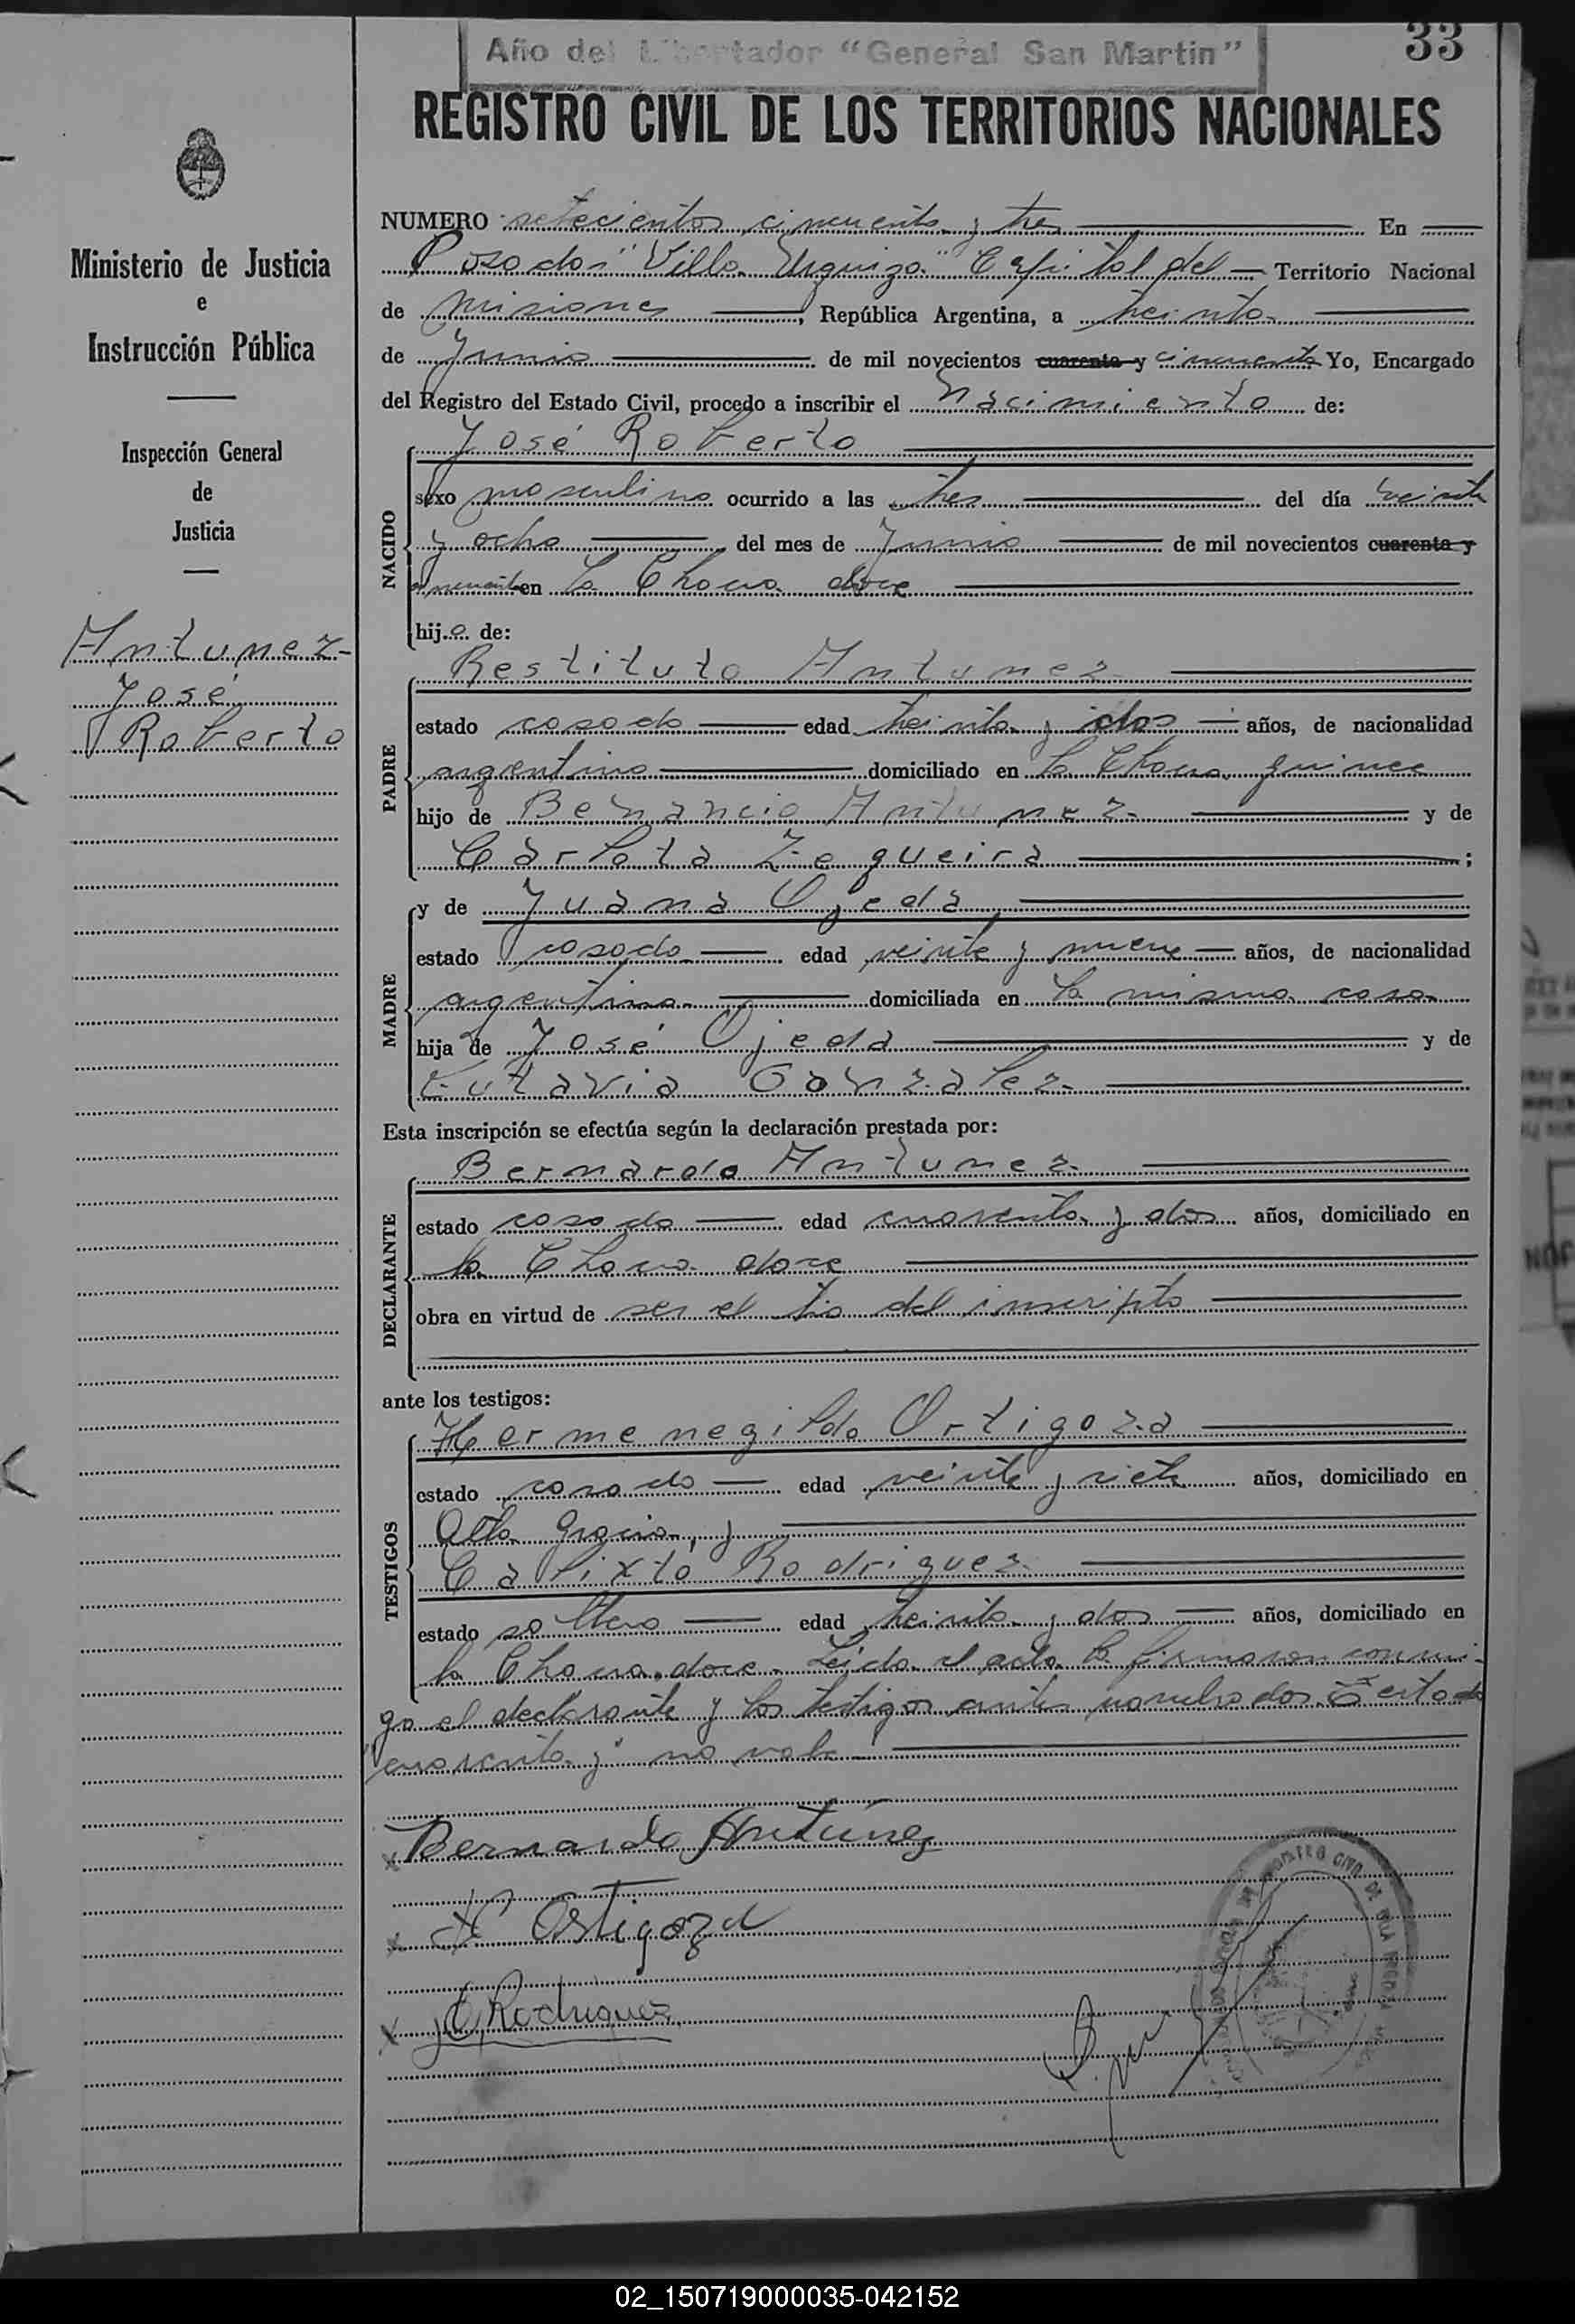 Año del Libertador "General San Martin"
33
REGISTRO CIVIL DE LOS TERRITORIOS NACIONALES
Ministerio de Justicia
e
Instrucción Pública
Inspección General
de
Justicia
Antunez
José
Roberto
NUMERO setecientos cincuenta y tres En
Posadas "Villa Urquiza" Capital del Territorio Nacional
de Misiones, República Argentina, a treinta
de Junio de mil novecientos cuarenta y cincuenta Yo, Encargado
del Registro del Estado Civil, procedo a inscribir el Nacimiento de:
NACIDO
José Roberto
sexo masculino ocurrido a las tres del día veinte
y ocho del mes de Junio de mil novecientos cuarenta y
cincuenta en la Chacra doce
hijo de:
PADRE
Restituto Antunez
estado casado edad treinta y dos años, de nacionalidad
argentina domiciliado en la Chacra quince
hijo de Benancio Antunez y de
Carlota Zequeira;
MADRE
y de Juana Ojeda
estado casada edad veinte y nueve años, de nacionalidad
argentina domiciliada en la misma casa
hija de José Ojeda y de
Eutavia Gonzalez
Esta inscripción se efectúa según la declaración prestada por:
DECLARANTE
Bernardo Antunez
estado casado edad cuarenta y dos años, domiciliado en
la Chacra doce
obra en virtud de ser el tio del inscripto
ante los testigos:
TESTIGOS
Hermenegildo Ortigoza
estado casado edad veinte y siete años, domiciliado en
Alta Gracia, y
Calixto Rodriguez
estado soltero edad treinta y dos años, domiciliado en
la Chacra doce. Leida el acta la firmaron conmi-
go el declarante y los testigos antes nombrados. Testado
"cuarenta y" no vale
Bernardo Antúnez
H Ortigoza
C, Rodriguez
02_150719000035-042152